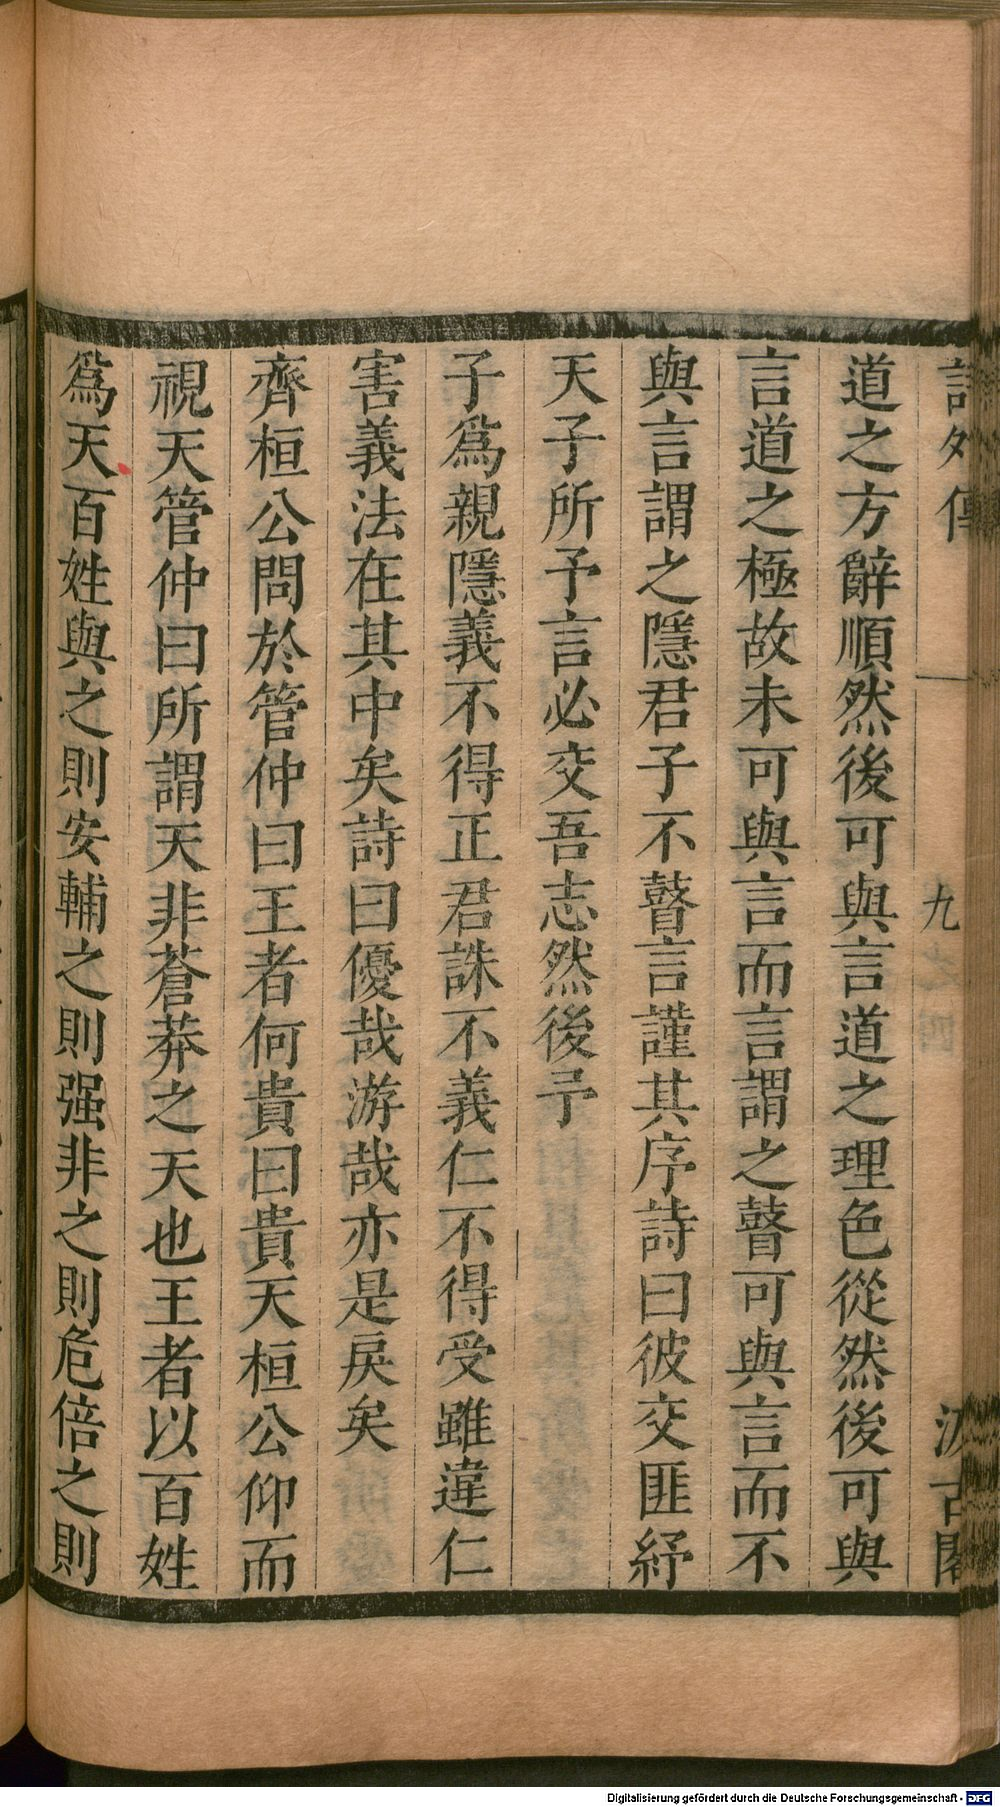 詩外傳 九 汲古閣
道之方辭順然後可與言道之理色從然後可與
言道之極故未可與言而言謂之瞽可與言而不
與言謂之隱君子不瞽言謹其序詩曰彼交匪紓
天子所予言必交吾志然後予
子爲親隱義不得正君誅不義仁不得受雖違仁
害義法在其中矣詩曰優哉游哉亦是戾矣
齊桓公問於管仲曰王者何貴曰貴天桓公仰而
視天管仲曰所謂天非蒼莽之天也王者以百姓
爲天百姓與之則安輔之則强非之則危倍之則
Digitalisierung gefördert durch die Deutsche Forschungsgemeinschaft - DFG